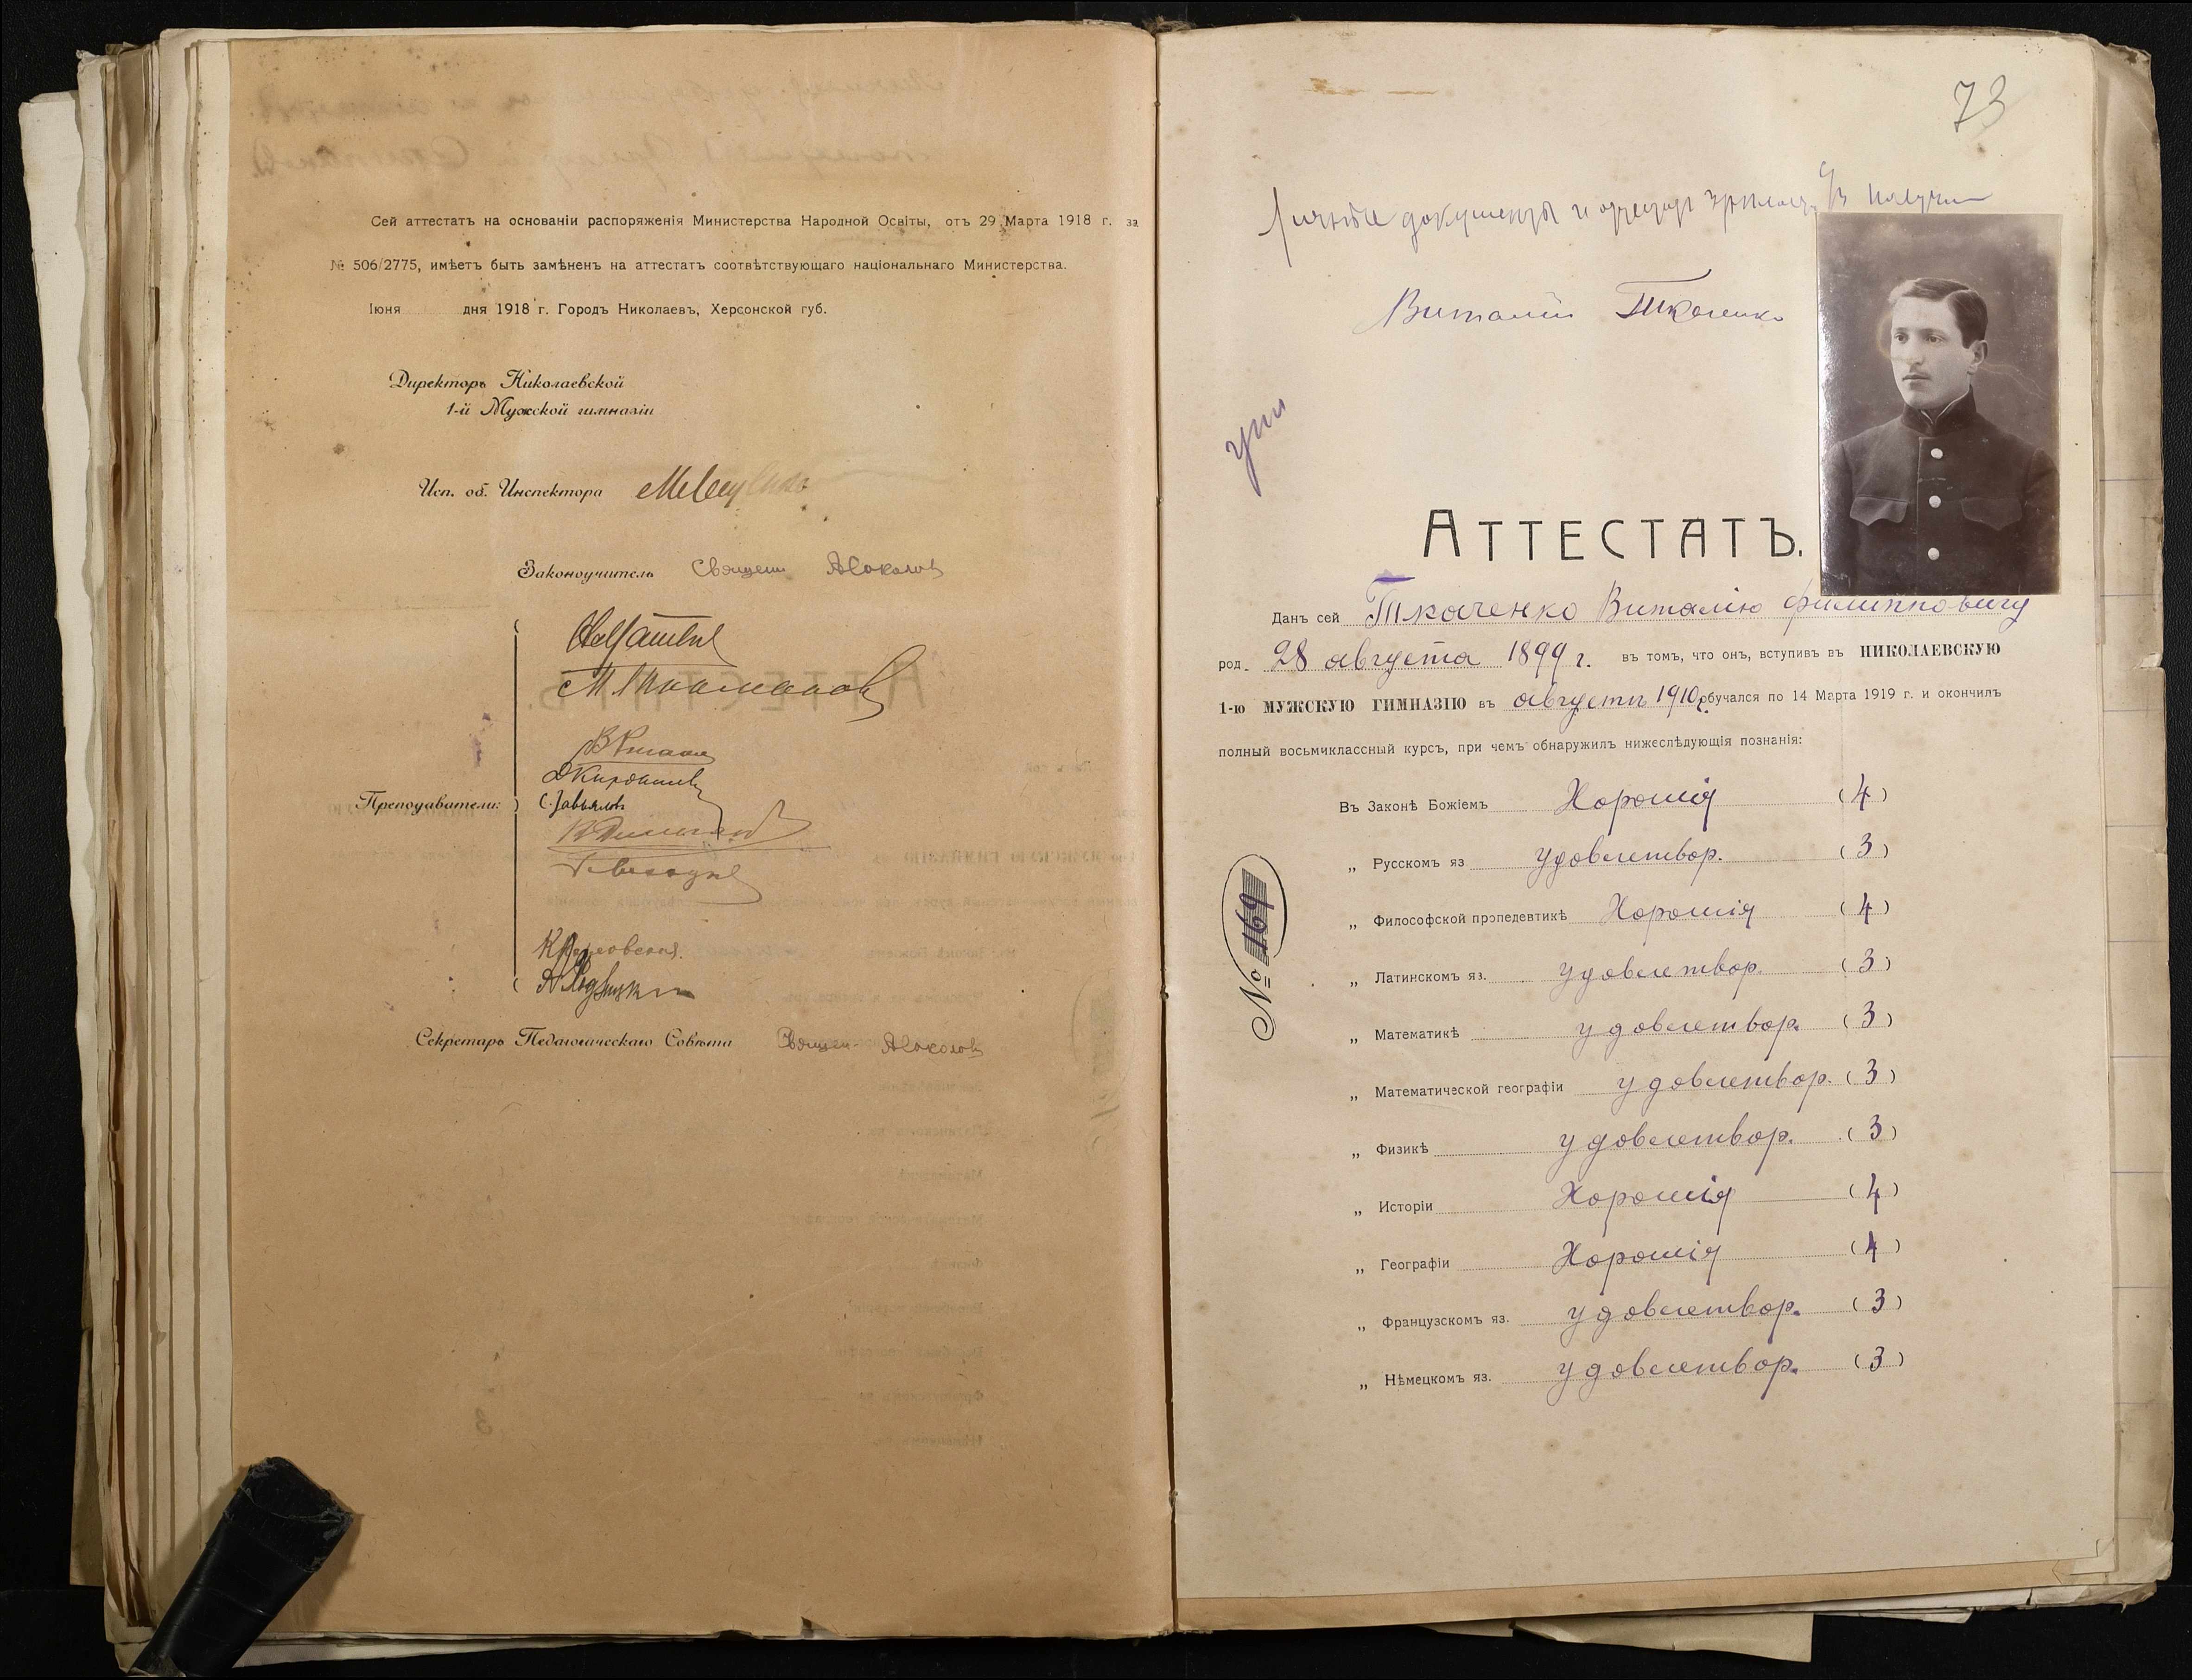 Сей аттестатъ на основаніи распоряженія Министерства Народной Освіты, отъ 29 Марта 1918 г. за
№ 506/2775, имѣетъ быть замѣненъ на аттестатъ соотвѣтствующаго національнаго Министерства.
Іюня дня 1918 г. Городъ Николаевъ, Херсонской губ.
Директоръ Николаевской
1-й Мужской гимназіи
Исп. об. Инспектора
Законоучитель Священ. А Соколовъ
Преподаватели:
С. Завьялов
Секретарь Педагогическаго Совѣта Священ. А Соколовъ
73
Личные документы и аттестат зрѣлости получил
Виталий Ткаченко
АТТЕСТАТЪ.
Данъ сей Ткаченко Виталію Филипповичу
род. 28 августа 1899 г. въ томъ, что онъ, вступив въ НИКОЛАЕВСКУЮ
1-ю МУЖСКУЮ ГИМНАЗІЮ въ августѣ 1910 г. обучался по 14 Марта 1919 г. и окончилъ
полный восьмиклассный курсъ, при чемъ обнаружилъ нижеслѣдующія познанія:
Въ Законѣ Божіемъ Хорошія (4)
„ Русскомъ яз удовлетвор. (3)
„ Философской пропедевтикѣ Хорошія (4)
„ Латинскомъ яз. удовлетвор. (3)
„ Математикѣ удовлетвор. (3)
„ Математической географіи удовлетвор. (3)
„ Физикѣ удовлетвор. (3)
„ Исторіи Хорошія (4)
„ Географіи Хорошія (4)
„ Французскомъ яз. удовлетвор. (3)
„ Нѣмецкомъ яз. удовлетвор. (3)
№ 169